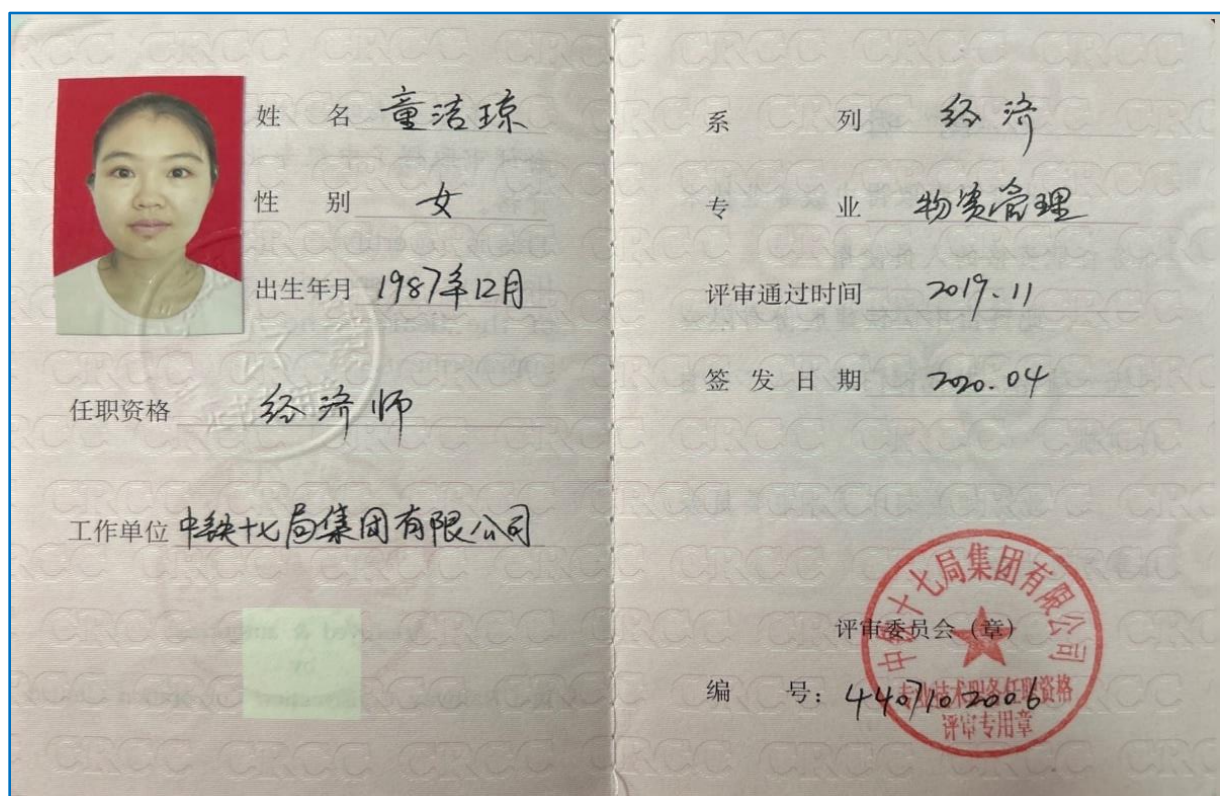 姓名 童洁琼
性别 女
出生年月 1987年12月
任职资格 经济师
工作单位 中铁十七局集团有限公司
系列 经济
专业 物资管理
评审通过时间 2019.11
签发日期 2020.04
评审委员会（章）
编号：4407102006
中铁十七局集团有限公司
专业技术职务任职资格
评审专用章
CRCC